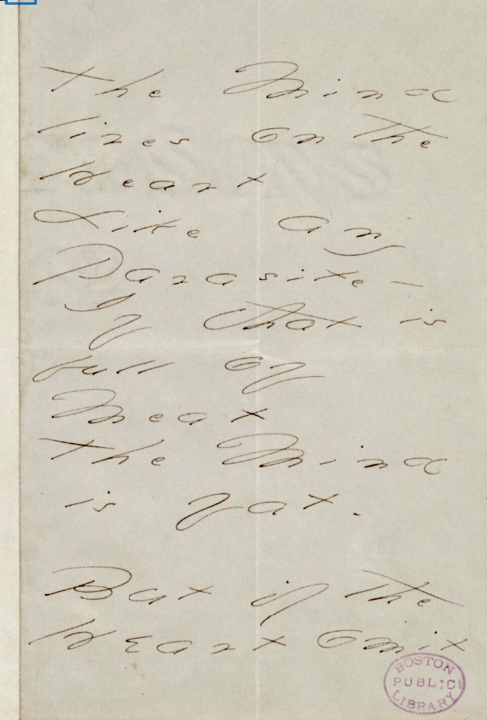 The Mind
lives on the
Heart
Like any
Parasite -
If that is
full of
Meat
The Mind
is fat.
But if the
Heart omit
BOSTON
PUBLIC
LIBRARY